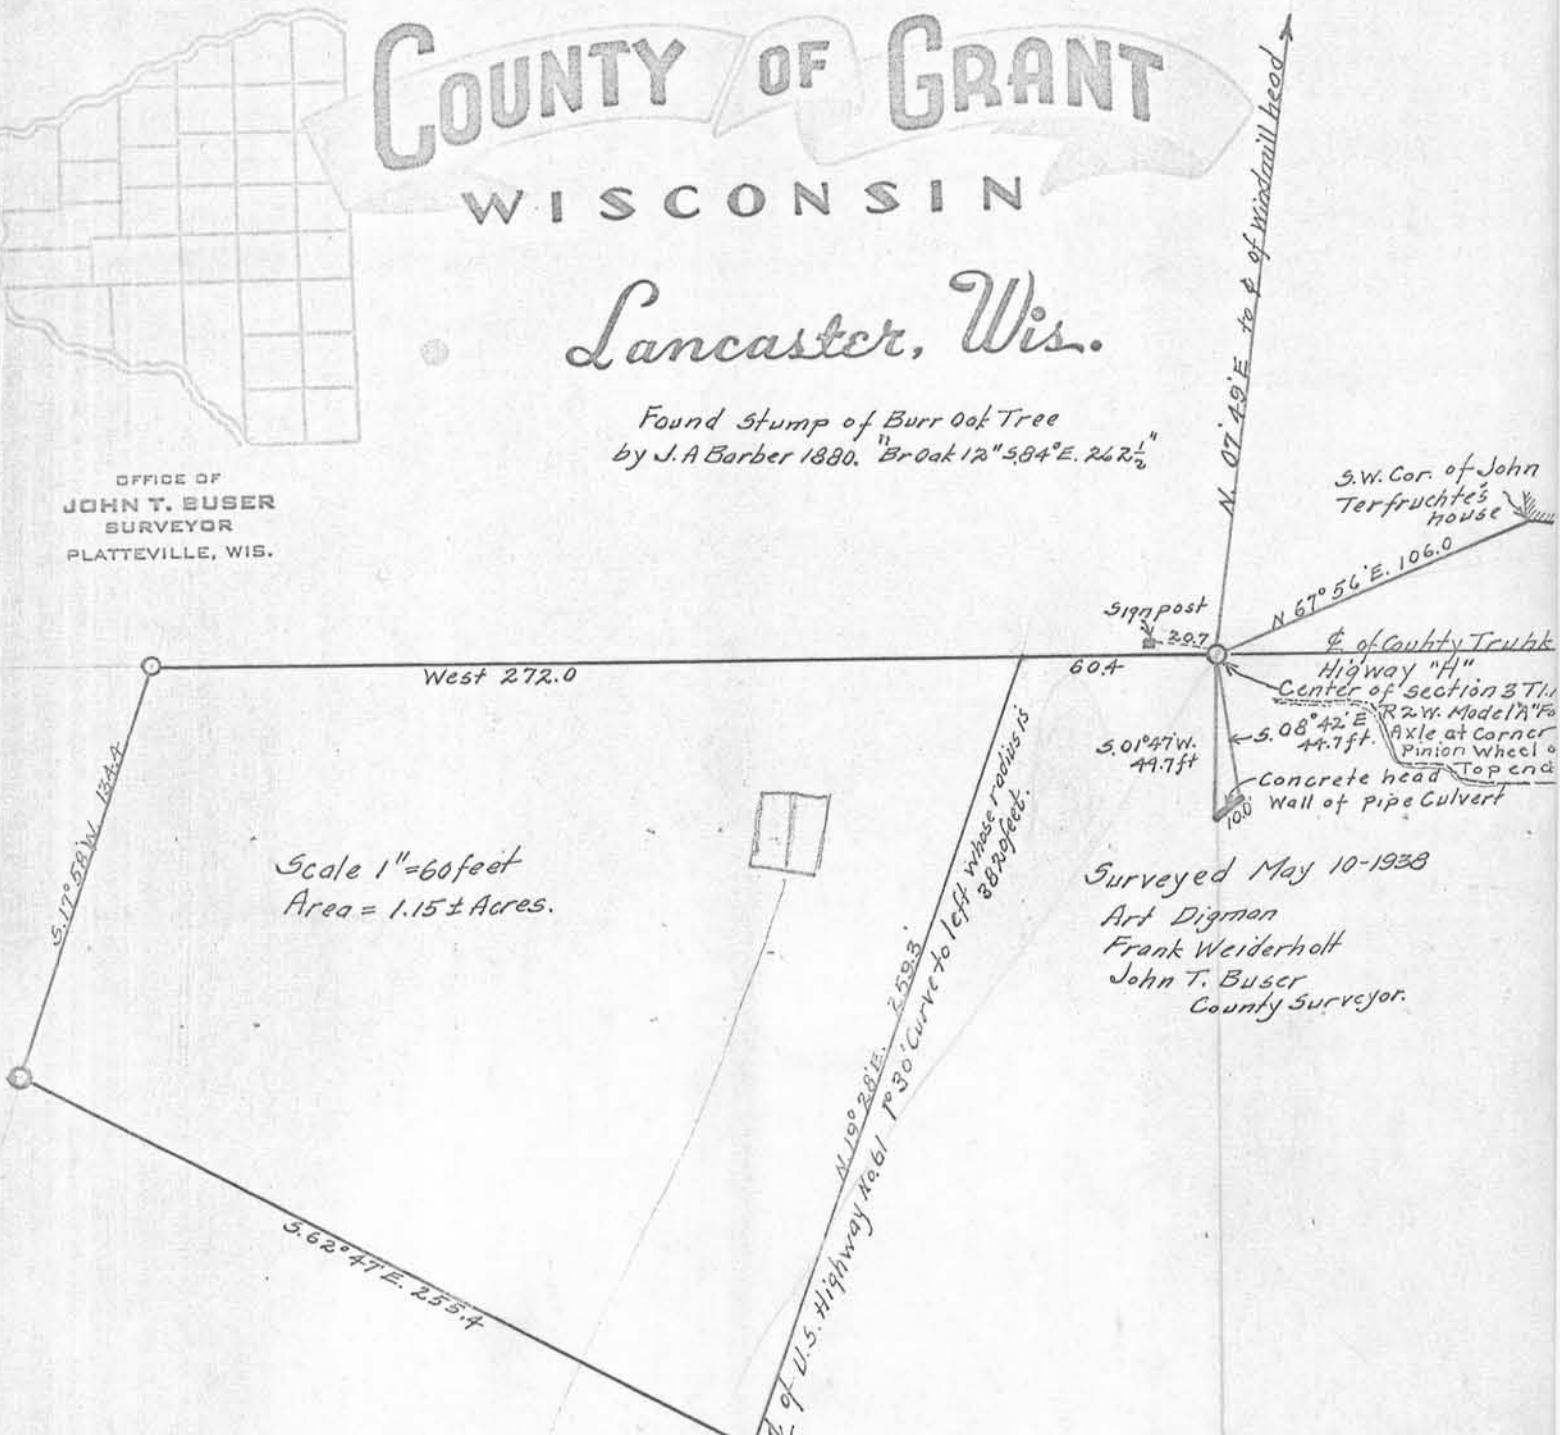 COUNTY OF GRANT
WISCONSIN
Lancaster, Wis.
OFFICE OF
JOHN T. BUSER
SURVEYOR
PLATTEVILLE, WIS.
Found Stump of Burr Oak Tree
by J.A Barber 1880. "Br Oak 12" S.84°E. 262½"
N. 07°49'E to ℄ of Windmill head
S.W. Cor. of John
Terfruchte's
house
N 67°56'E. 106.0
Sign post
20.7
℄ of County Trunk
Higway "H"
Center of section 3 T1
R2W. Model "A" Fo
Axle at Corner
Pinion Wheel o
Top end
West 272.0
60.4
S. 01°47'W.
44.7ft
S. 08°42'E
44.7ft.
Concrete head
Wall of Pipe Culvert
10.0
S. 17°58'W. 134.4
Scale 1"=60 feet
Area = 1.15± Acres.
Surveyed May 10-1938
Art Digman
Frank Weiderholt
John T. Buser
County Surveyor.
N. 19°28'E. 259.3'
℄ of U.S. Highway No. 61 1°30' Curve to left whose radius is
3820 feet.
S. 62°47'E. 255.4